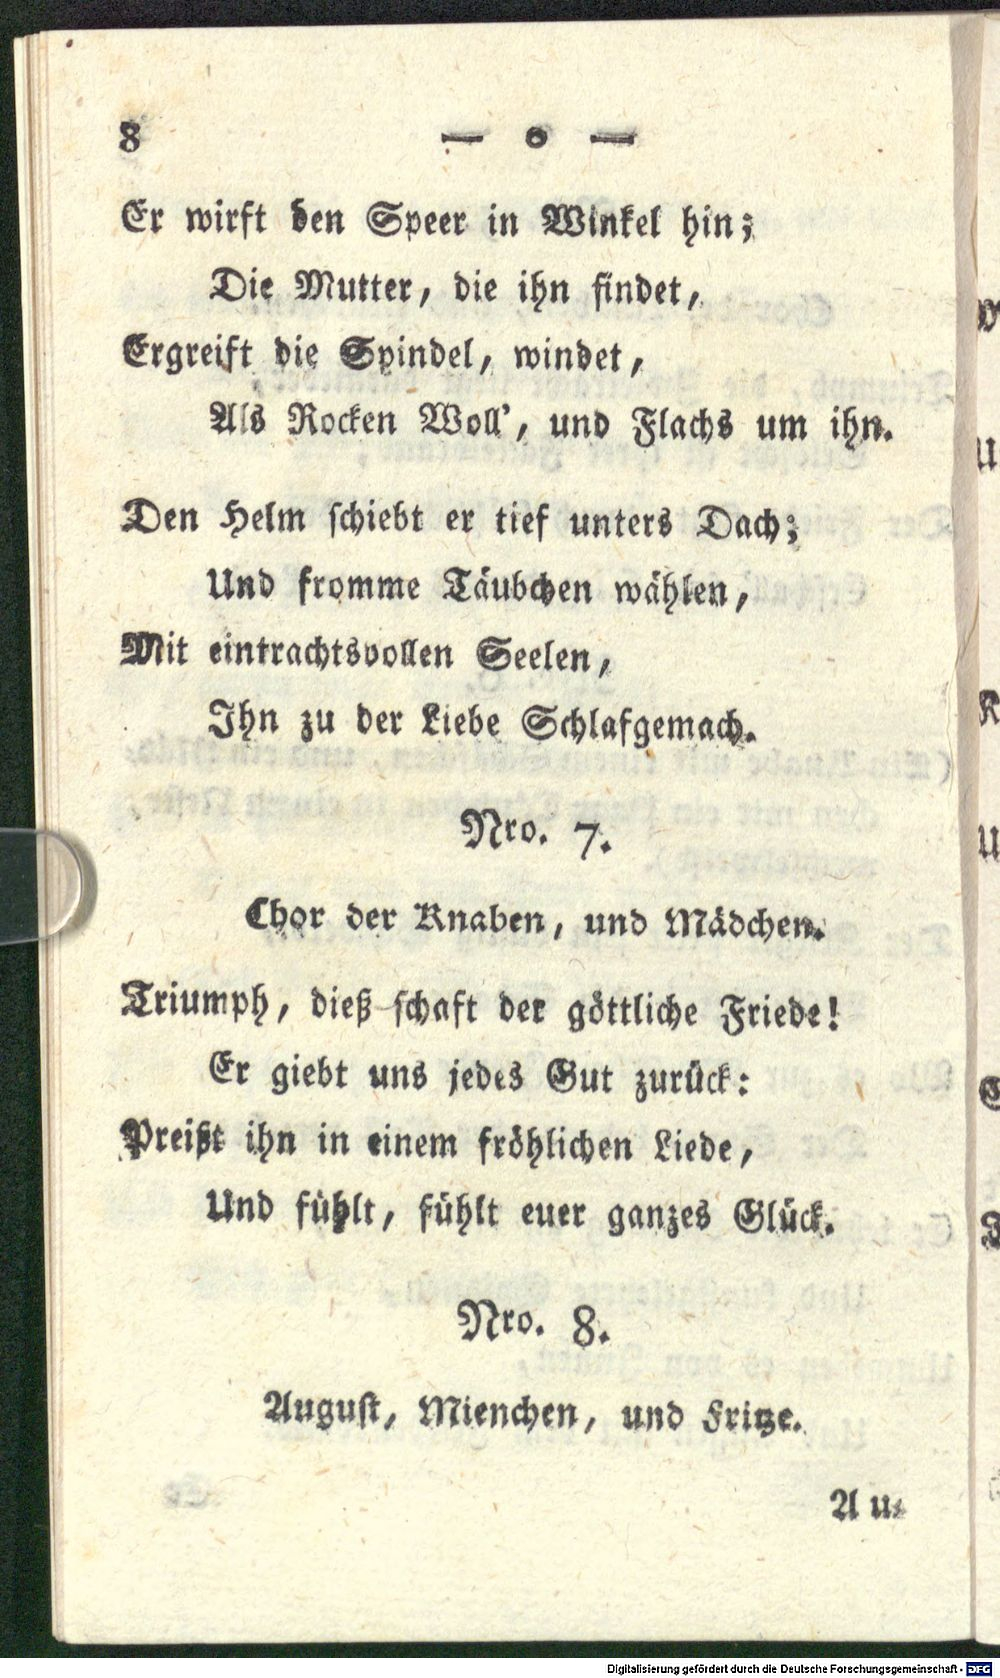 8 — o —
Er wirft den Speer in Winkel hin;
Die Mutter, die ihn findet,
Ergreift die Spindel, windet,
Als Rocken Woll’, und Flachs um ihn.
Den Helm ſchiebt er tief unters Dach;
Und fromme Täubchen wählen,
Mit eintrachtsvollen Seelen,
Ihn zu der Liebe Schlafgemach.
Nro. 7.
Chor der Knaben, und Mädchen.
Triumph, dieß ſchaft der göttliche Friede!
Er giebt uns jedes Gut zurück:
Preißt ihn in einem fröhlichen Liede,
Und fühlt, fühlt euer ganzes Glück.
Nro. 8.
Auguſt, Mienchen, und Fritze.
Au⸗
Digitalisierung gefördert durch die Deutsche Forschungsgemeinschaft - DFG